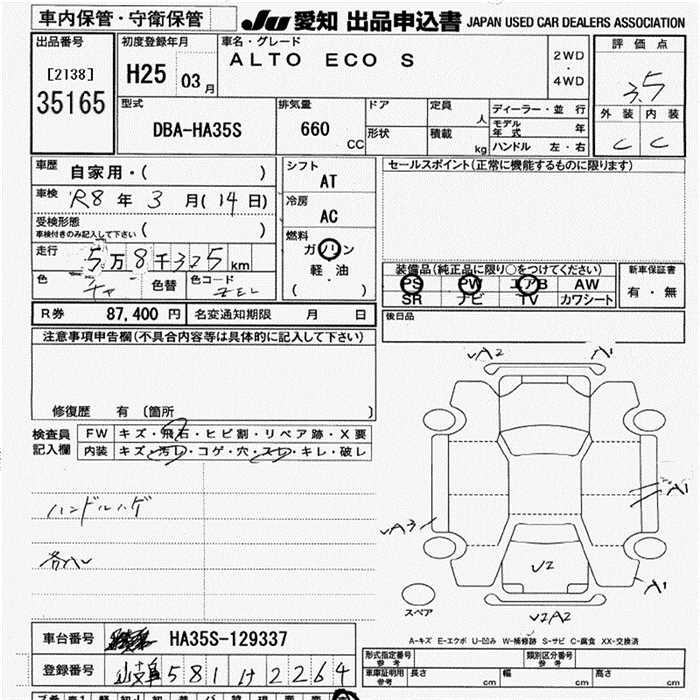 車内保管・守衛保管
JU 愛知 出品申込書 JAPAN USED CAR DEALERS ASSOCIATION
出品番号
[2138]
35165
初度登録年月
H25 03 月
車名・グレード
ALTO ECO S
2WD
・
4WD
評価点
3.5
外装 内装
C C
型式
DBA-HA35S
排気量
660 CC
ドア
形状
定員 人
積載 kg
ディーラー・並行
モデル年式 年
ハンドル 左・右
車歴 自家用・( )
車検 R8 年 3 月(14日)
受検形態
車検付きのみ記入して下さい ( )
走行 5万8千325 km
色 色替 色コード ZEL
シフト
AT
冷房
AC
燃料
ガソリン
軽・油
( )
セールスポイント(正常に機能するものに限ります)
装備品(純正品に限り○をつけてください)
PS PW エアB AW
SR ナビ TV カワシート
新車保証書
有・無
後日品
R券 87,400 円 名変通知期限 月 日
注意事項申告欄(不具合内容等は具体的に記入して下さい)
修復歴 有 〔箇所 〕
検査員
記入欄
FW キズ・飛石・ヒビ割・リペア跡・X要
内装 キズ・汚レ・コゲ・穴・スレ・キレ・破レ
ハンドルハゲ
A2 A1
A1
A3
U2
A1
U2A2
スペア
A-キズ E-エクボ U-凹み W-補修跡 S-サビ C-腐食 XX-交換済
車台番号 HA35S-129337
登録番号 岐阜 581 け 2264
形式指定番号
参考
類別区分番号
参考
車庫証明用
参考
長さ cm 幅 cm 高さ cm